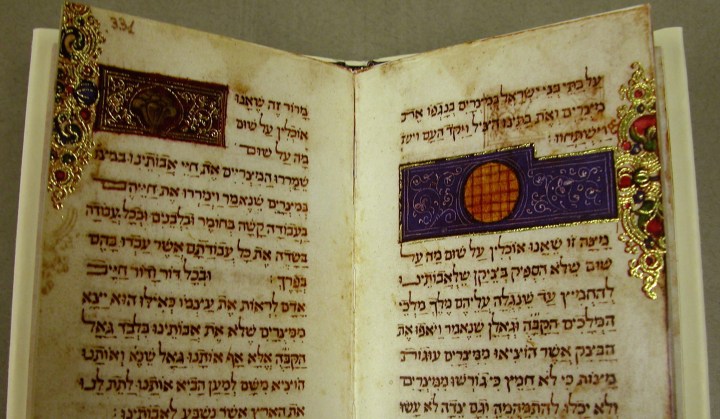 על בתי בני ישראל במצרים בנגפו את
מצרים ואת בתינו הציל ויקד העם ויש
שוישתחוו:
מצה זו שאנו אוכלין על שום מה על
שום שלא הספיק בציקן שלאבותינו
להחמיץ עד שנגלה עליהם מלך מלכי
המלכים הקב״ה וגאלן שנאמר ויאפו את
הבצק אשר הוציאו ממצרים עוגות
מצות כי לא חמץ כי גורשו ממצרים
ולא יכלו להתמהמה וגם צדה לא עשו
מרור זה שאנו
אוכלין על שום
מה על שום
שמררו המצריים את חיי אבותינו במצ
במצרים שנאמר וימררו את חייהם
בעבודה קשה בחומר ובלבנים ובכל עבודה
בשדה את כל עבודתם אשר עבדו בהם
בפרך ובכל דור ודור חייב
אדם לראות את עצמו כאילו הוא יצא
ממצרים שלא את אבותינו בלבד גאל
הקב״ה אלא אף אותנו גאל שנא ואותנו
הוציא משם למען הביא אותנו לתת לנו
את הארץ אשר נשבע לאבותינו: